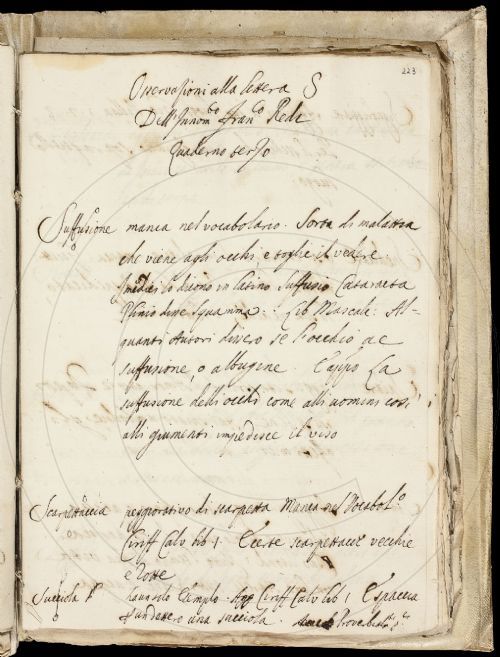 223
Osservazioni alla lettera S
Dell'Innom.to Fran.co Redi
Quaderno terzo
Suffusione manca nel vocabolario. Sorta di malattia
che viene agli occhi, e toglie il vedere.
I medici lo dicono in latino Suffusio Cataracta
Plinio dice Squamma. Lib Mascalc. Al-
quanti Autori dicono se l'occhio ae
suffusione, o albugine. Cappo La
suffusione delli occhi come alli uomini così
alli giumenti impedisce il viso
Scarpettaccia peggiorativo di scarpetta Manca nel Vocabol.o
Ciriff Calv lib 1 E certe scarpettacce vecchie
e rotte
Succiola
Ciriff Calv lib 1 E spaccia
una succiola.